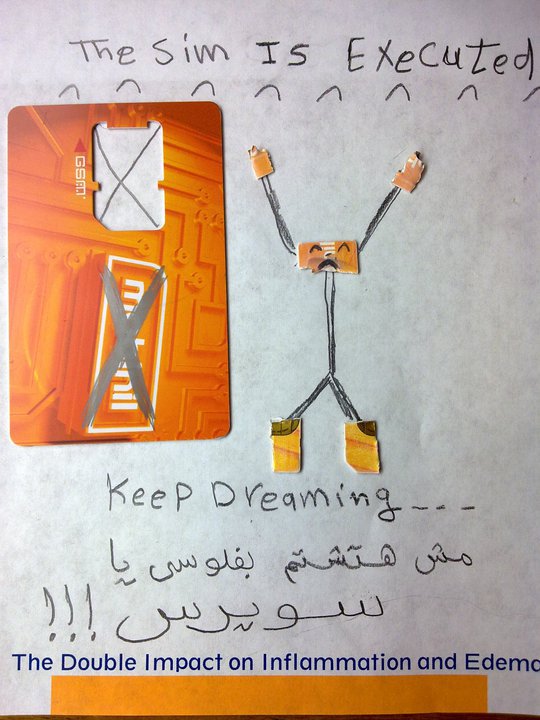 The Sim Is Executed
GSM
mobinil
Keep Dreaming---
مش هتشتم بفلوسى يا
سويرس !!!
The Double Impact on Inflammation and Edema